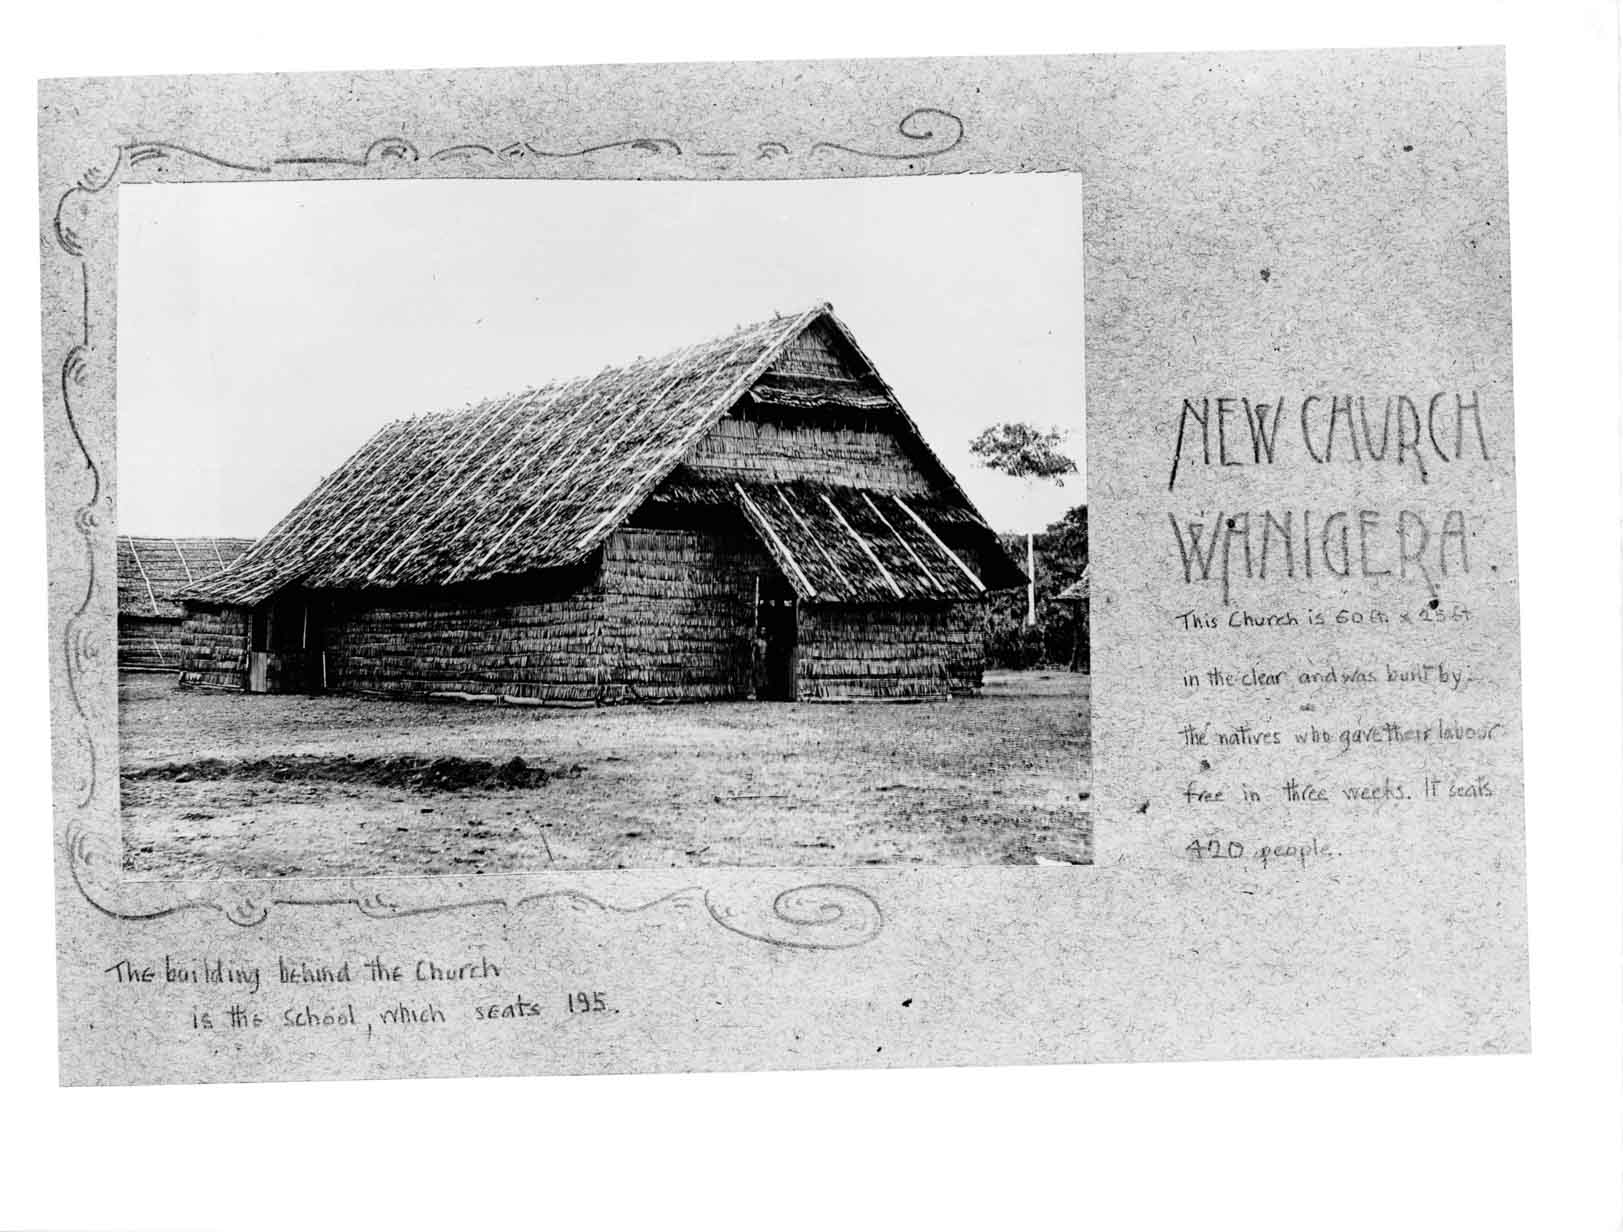 NEW CHURCH
WANIGERA.
This Church is 60 ft. x 25 ft
in the clear and was built by
the natives who gave their labour
free in three weeks. It seats
420 people.
The building behind the Church
is the school, which seats 195.